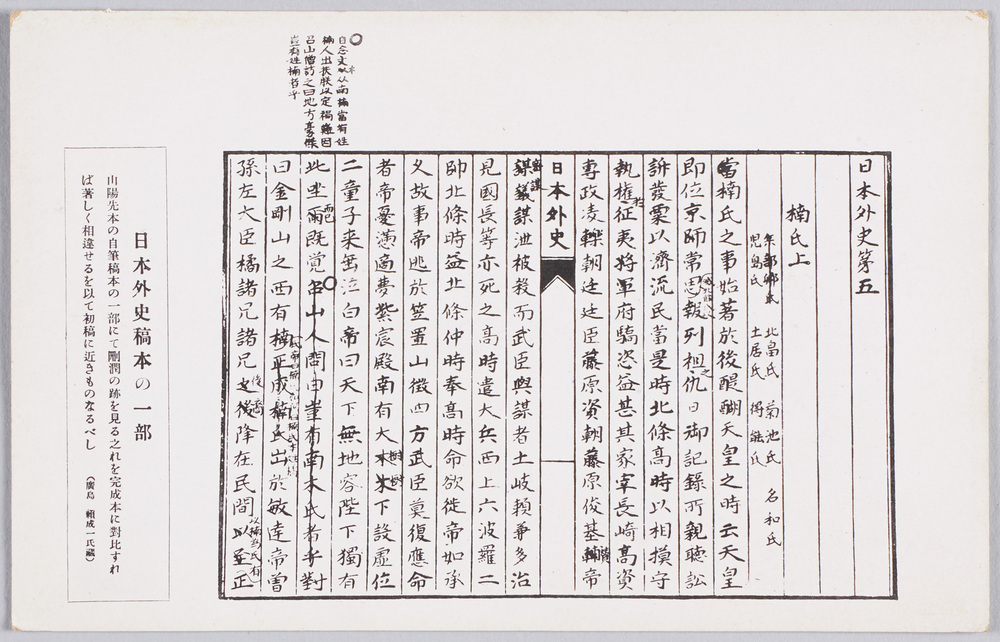 日本外史第五
楠氏上
北畠氏 菊池氏 名和氏
児島氏 土居氏 得能氏
當楠氏之事始著於後醍醐天皇之時云天皇
即位京師常思報列祖之仇日御記録所親聴訟
訴發粟以濟流民當是時北條高時以相摸守
執權於征夷将軍府驕恣益甚其家宰長崎高資
專政凌轢朝廷廷臣藤原資朝藤原俊基
帝
日本外史
密謀
謀泄被殺而武臣與謀者土岐頼兼多治
見國長等亦死之高時遣大兵西上六波羅二
帥北條時益北條仲時奉高時命欲徙帝如承
久故事帝逃於笠置山徴四方武臣莫復應命
者帝憂懣適夢紫宸殿南有大樹樹下設虚位
二童子来岳泣白帝曰天下無地容陛下獨有
此坐而已既覚召山人問曰豈有南木氏者乎對
曰金剛山之西有楠正成楠氏出於敏達帝曽
孫左大臣橘諸兄諸兄後裔降在民間以楠為氏有正
自念文木从南楠當有姓
楠人出扶朕以定禍難因
召山僧訪之曰地方豪傑
豈有姓楠者乎
日本外史稿本の一部
山陽先本の自筆稿本の一部にて刪潤の跡を見る之れを完成本に對比すれ
ば著しく相違せるを以て初稿に近きものなるべし
(廣島 頼成一氏藏)